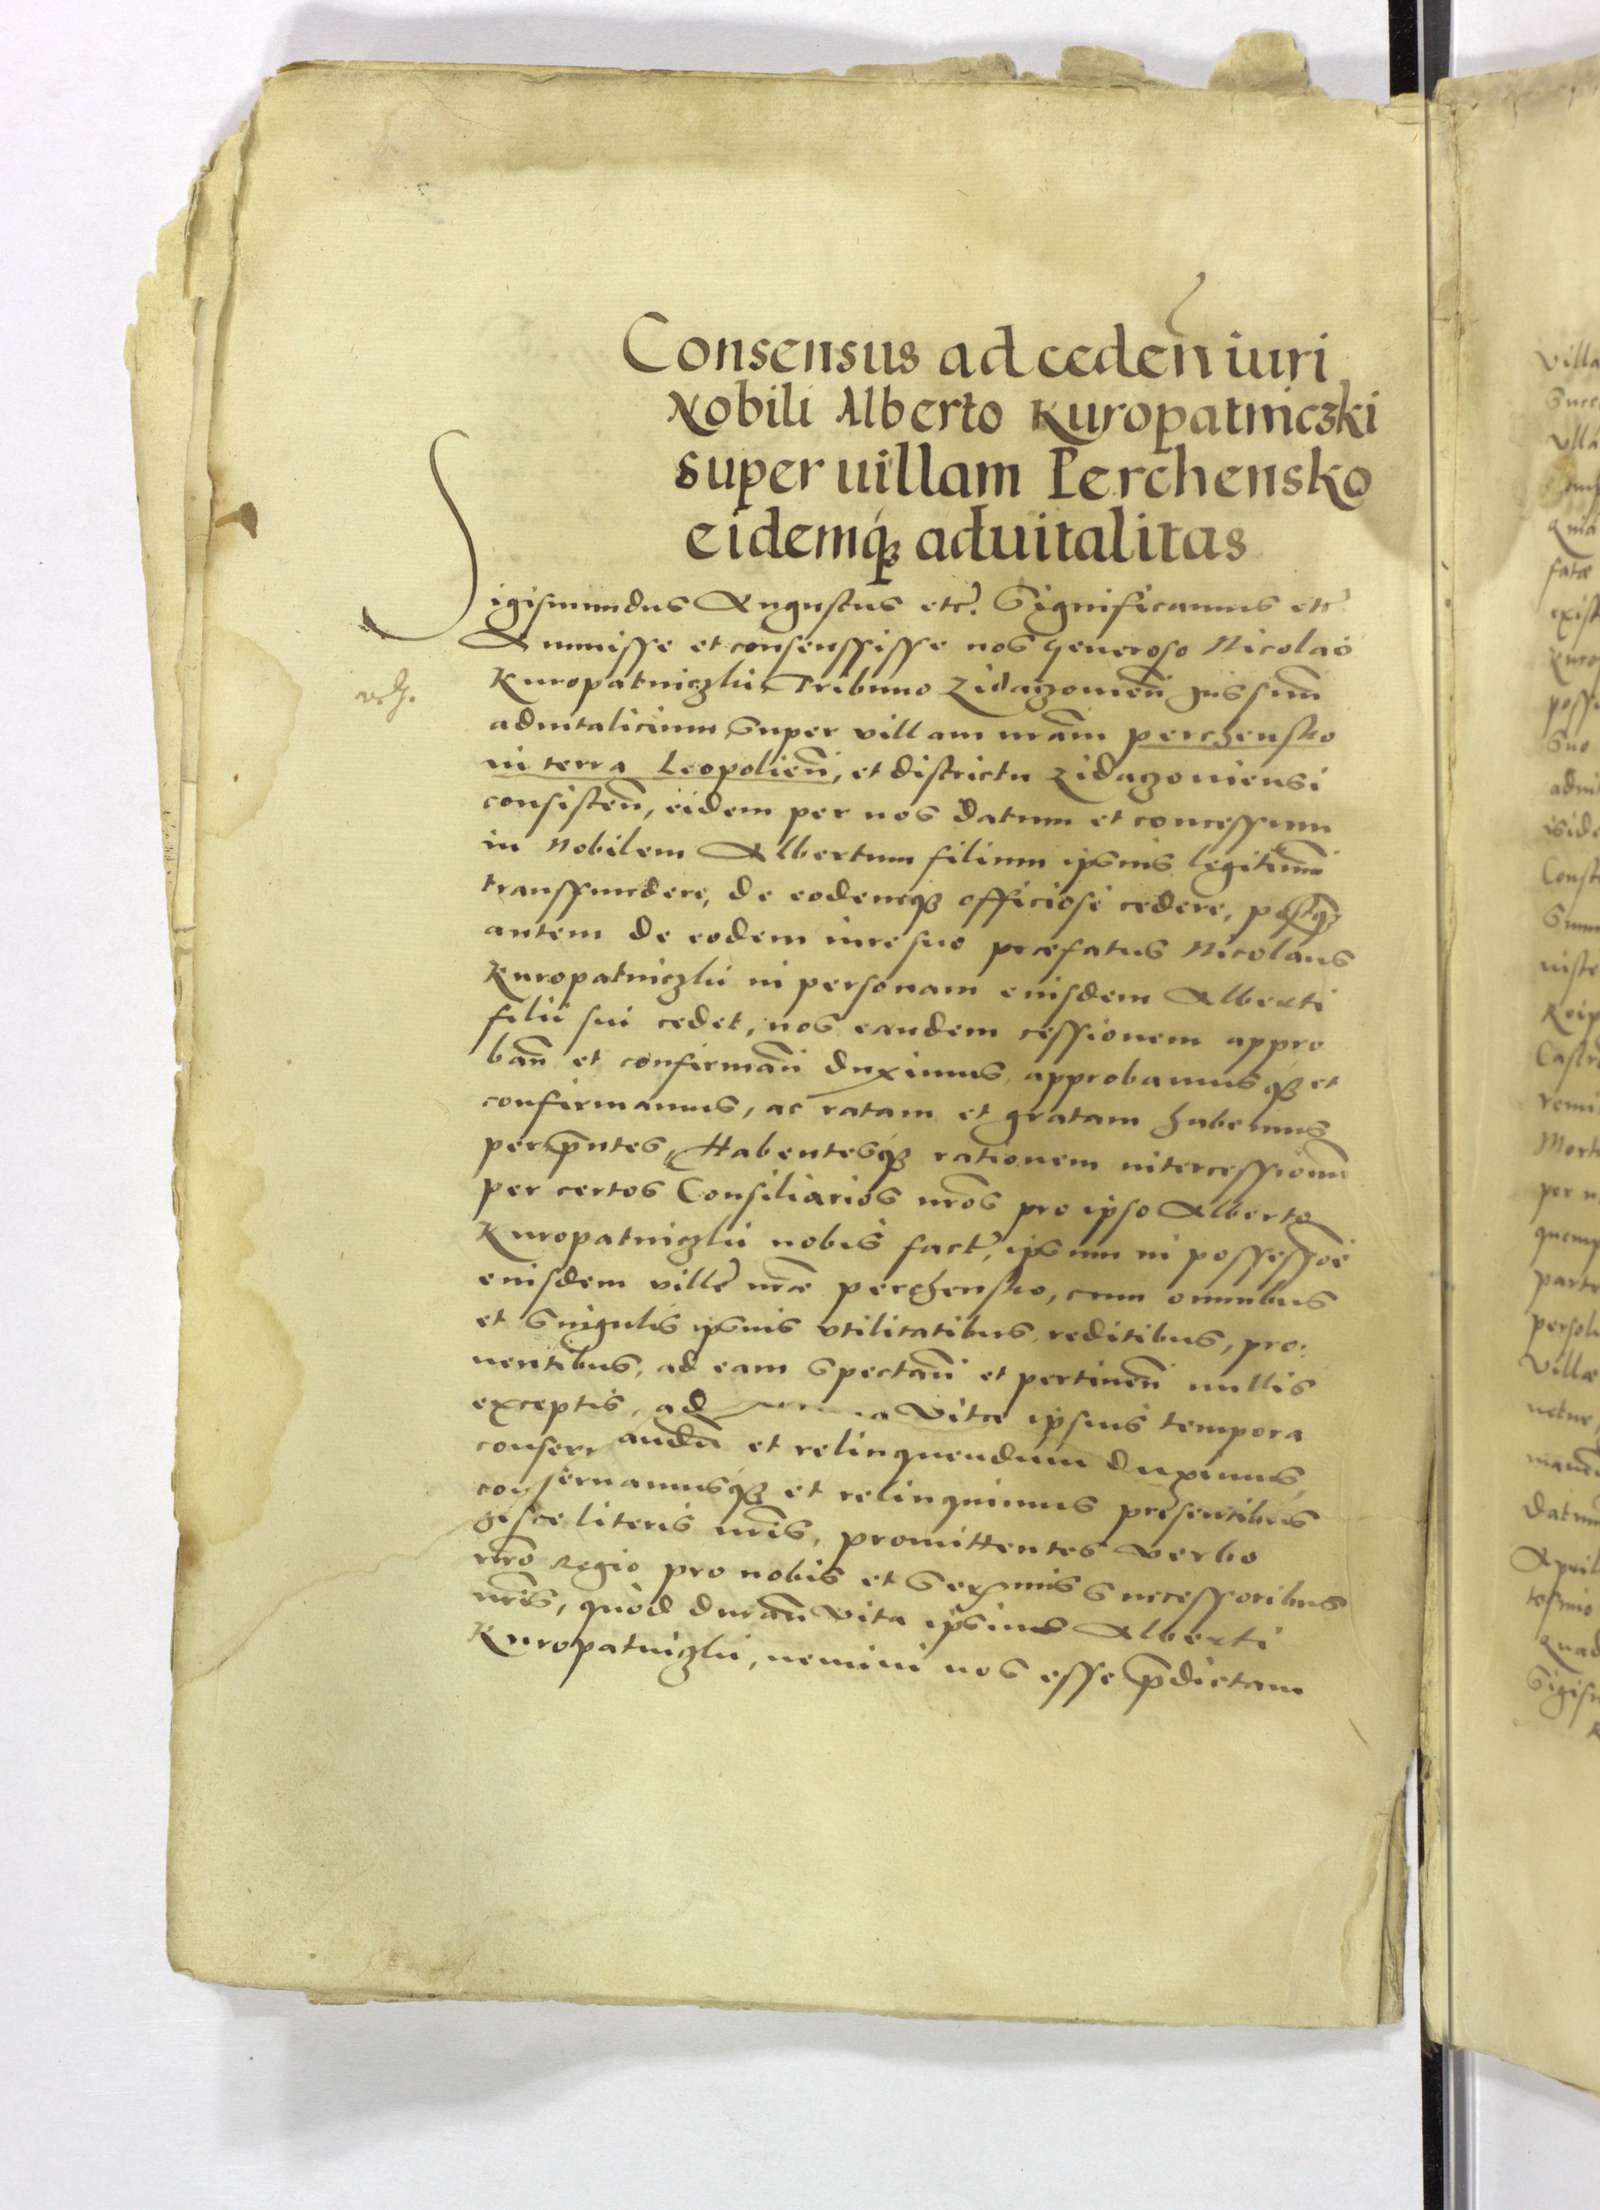 Consensus ad ceden iuri
Nobili Alberto Kuropatniczki
super uillam Perchensko
eidemq₃ aduitalitas
Sigismundus Augustus etc. Significamus etc.
Annuisse et consensisse nos Generoso Nicolao
Kuropatniczki Tribuno Zidaczouien̄ Jus suū
aduitalicium super villam nr̄am perchensko
in terra Leopolien̄, et districtu Zidaczouiensi
consisten̄, eidem per nos datum et concessum
in Nobilem Albertum filium ipsius legitimū
transfundere, de eodemq₃ officiose cedere, postq₃
autem de eodem iure suo præfatus Nicolaus
Kuropatniczki in personam eiusdem Alberti
filii sui cedet, nos eandem cessionem appro
ban̄ et confirman̄ duximus, approbamusq₃ et
confirmamus, ac ratam et gratam habemus
per p̄ntes, Habentesq₃ rationem intercessionū
per certos Consiliarios nr̄os pro ipso Alberto
Kuropatniczki nobis fact, ipsum in possessiōe
eiusdem ville nr̄æ perchensko, cum omnibus
et singulis ipsius vtilitatibus, reditibus, pro:
uentibus, ad eam spectan̄ et pertinen̄ nullis
exceptis, ad vitæ ipsius tempora
conseruandū et relinquendum duximus,
conseruamusq₃ et relinquimus presentibus
hisce literis nr̄is, promittentes verbo
nr̄o Regio pro nobis et Serx̄mis successoribus
nr̄is, quòd duran̄ vita ipsius Alberti
Kuropatniczki, nemini nos esse p̄dictam
villa
Succ
vlla
fatæ
exist
Kurop
posse
suo
aduit
Const
Summ
Reip
Castr
remi
Mort
per n
quemp
parte
persolu
villæ
Datum
April
Quad
Sigism